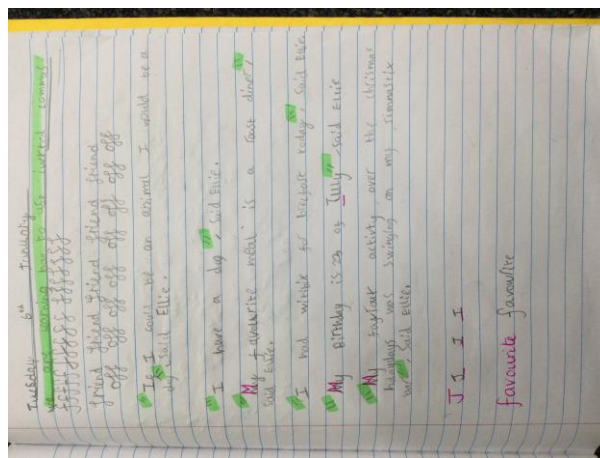 Tuesday 6th January
We are learning how to use iverted commas
fffffffffff fffffff
friend friend friend friend friend
off off off off off off off off
"If I could be an animal I would be a
dog", said Ellie.
"I have a dog", said Ellie.
"My favourite meal" is a roast diner",
said Ellie.
"I had for today", said Ellie.
"My Birthday is 23 of July", said Ellie
"My activty over the christmas
was swinging on my
bars", said Ellie.
J J J J
favourite favourite